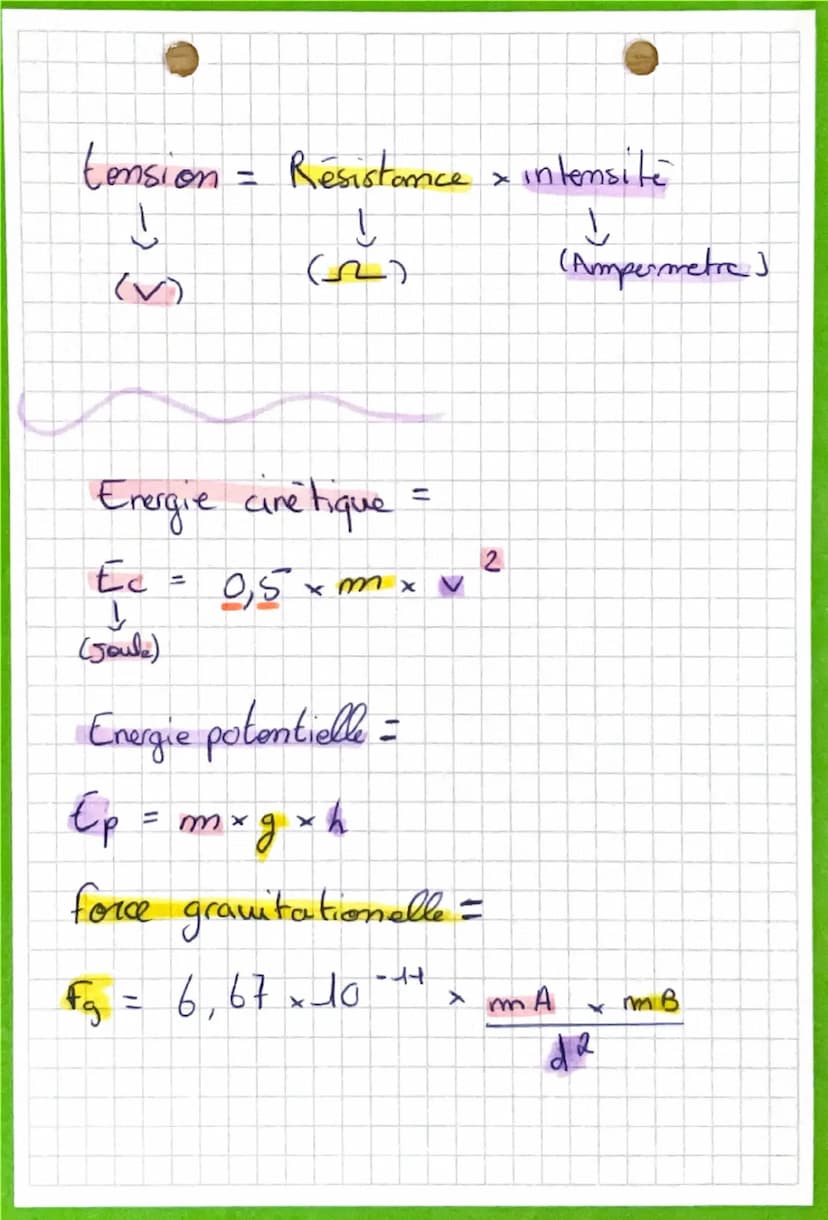 tension = Résistance × intensité
↓ ↓ ↓
(V) (Ω) (Ampermetre)
Energie cinétique =
Ec = 0,5 × m × v²
↓
(Joule)
Energie potentielle =
Ep = m × g × h
force gravitationelle =
Fg = 6,67 × 10⁻¹¹ × mA × mB
d²